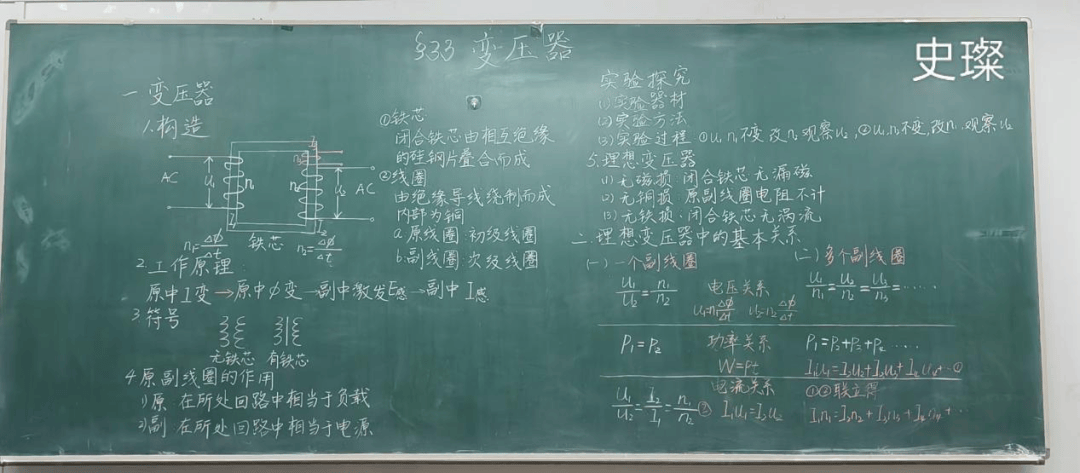 §3.3 变压器
史璨
一 变压器
1.构造
AC U1 n1 n2 U2 AC
铁芯
n1=ΔΦ/Δt n2=ΔΦ/Δt
①铁芯
闭合铁芯由相互绝缘
的硅钢片叠合而成
②线圈
由绝缘导线绕制而成
内部为铜
a.原线圈 初级线圈
b.副线圈 次级线圈
2.工作原理
原中I变→原中φ变→副中激发E感→副中I感
3.符号
无铁芯 有铁芯
4.原副线圈的作用
1)原 在所处回路中相当于负载
2)副 在所处回路中相当于电源
实验探究
(1)实验器材
(2)实验方法
(3)实验过程 ①U1 n1不变 改n2 观察U2,②U1 n2不变,改n1 观察U2
5.理想变压器
(1)无磁损 闭合铁芯无漏磁
(2)无铜损 原副线圈电阻不计
(3)无铁损:闭合铁芯无涡流
二.理想变压器中的基本关系
(一)一个副线圈
U1/U2=n1/n2 电压关系
U1=n1ΔΦ/Δt U2=n2ΔΦ/Δt
P1=P2 功率关系
W=Pt
U1/U2=I2/I1=n1/n2 电流关系
② I1U1=I2U2
(二)多个副线圈
U1/n1=U2/n2=U3/n3=·····
P1=P2+P3+P4 ····
I1U1=I2U2+I3U3+I4U4+··①
①②联立得
I1n1=I2n2+I3n3+I4n4+··